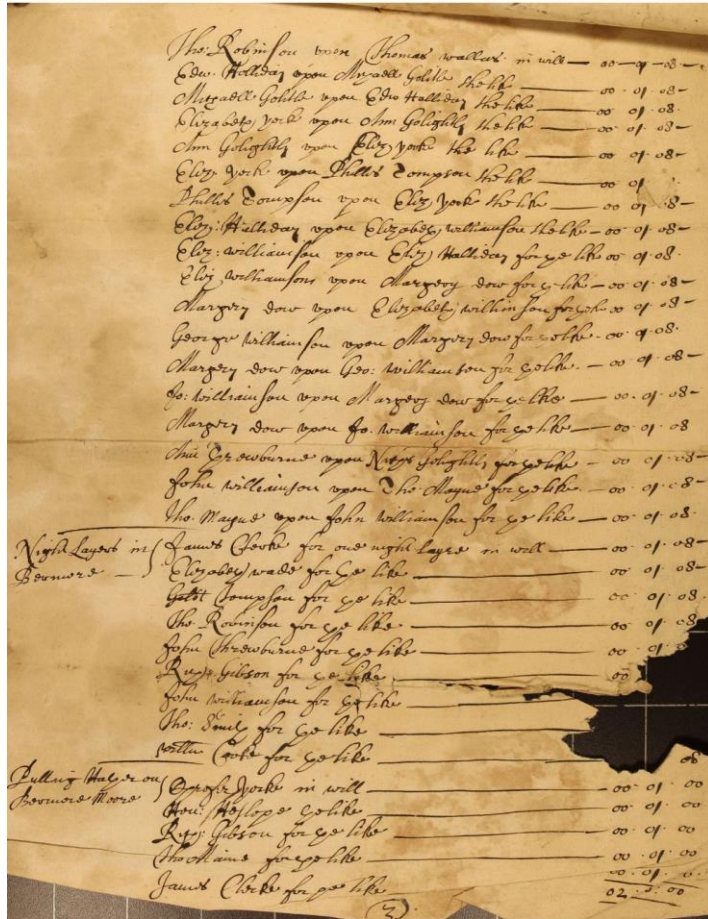 Tho: Robinson upon Thomas wallas in will — 00 - 01 - 08 -
Edw. Holliday upon Myraell Golitle the like — 00 01 · 08 -
Myraell Golitle upon Edw Holliday the like — 00 01 · 08 ·
Elizabeth york upon Ann Golightly the like — 00 · 01 · 08 -
Ann Golightly upon Eliz: yorke the like — 00 · 01 · 08 -
Eliz: yorke upon Phillis Tompson the like — 00 01
Phillis Tompson upon Eliz yorke the like — 00 01 · 08 -
Eliz: Halliday upon Elizabeth williamson the like — 00 01 · 08 -
Eliz: williamson upon Eliz: Halliday for ye like 00 01 · 08 ·
Eliz williamson upon Margery dow for ye like — 00 01 · 08 -
Margery dow upon Elizabeth williamson for ye like 00 01 · 08 -
George williamson upon Margery dow for ye like - 00 01 · 08 ·
Margery dow upon Geo: williamson for ye like — 00 · 01 · 08 -
Jo: williamson upon Margery dow for ye like — 00 · 01 · 08 -
Margery dow upon Jo. williamson for ye like — 00 · 01 · 08
Ann upon Golightly for ye like — 00 01 · 08 -
John williamson upon Tho. Mayne for ye like — 00 01 · 08 -
Tho. Mayne upon John williamson for ye like — 00 · 01 · 08 ·
Night Layers in James for one night Layre in will — 00 · 01 · 08 -
Elizabeth wade for ye like — 00 01 · 08 -
Tompson for ye like — 00 01 · 08
Tho. Robinson for ye like — 00 · 01 · 08 ·
John for ye like — 00 · 01 ·
Gibson for ye like — 00
John williamson for ye like
Tho: for ye like
for ye like 08
Pulling on yorke in will — 00 · 01 · 00
Moore Heslope ye like — 00 · 01 · 00
Gibson for ye like — 00 · 01 · 00
Tho Maine for ye like — 00 · 01 · 00
James Clerke for ye like — 00 · 01 · 0
02 · 0 · 00
(3)